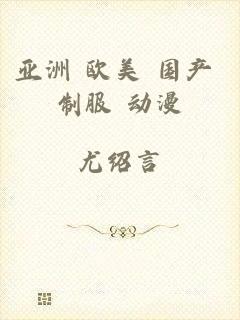 亚洲 欧美 国产
制服 动漫
尤绍言